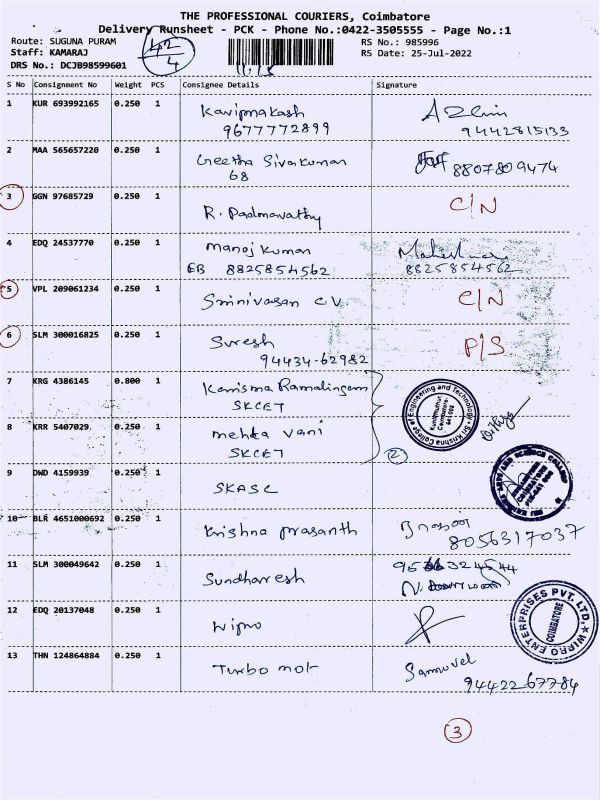 THE PROFESSIONAL COURIERS, Coimbatore
Delivery Runsheet - PCK - Phone No.:0422-3505555 - Page No.:1
Route: SUGUNA PURAM
Staff: KAMARAJ
DRS No.: DCJB98599601
42/4
11.15
RS No.: 985996
RS Date: 25-Jul-2022
S No Consignment No Weight PCS Consignee Details Signature
1 KUR 693992165 0.250 1 Kaviprakash
9677772899 9442815133
2 MAA 565657220 0.250 1 Geetha Sivakumar
68 8807809474
3 GGN 97685729 0.250 1 R. Padmavathy C/N
4 EDQ 24537770 0.250 1 Manoj Kumar
EB 8825854562 8825854562
5 VPL 209061234 0.250 1 Srinivasan C.V. C/N
6 SLM 300016825 0.250 1 Suresh P/S
94434-62982
7 KRG 4386145 0.800 1 Karisma Ramalingam
SKCET
Sri Krishna College of Engineering and Technology
Kuniamuthur, Coimbatore- 641 008
8 KRR 5407029 0.250 1 Mehta Vani
SKCET
2
9 DWD 4159939 0.250 1 SKASC
10 BLR 4651000692 0.250 1 Krishna Prasanth
8056317037
11 SLM 300049642 0.250 1 Sundharesh
12 EDQ 20137048 0.250 1 Wipro
WIPRO ENTERPRISES PVT. LTD.
COIMBATORE
13 THN 124864884 0.250 1 Turbo mot Samuvel
9442267784
3